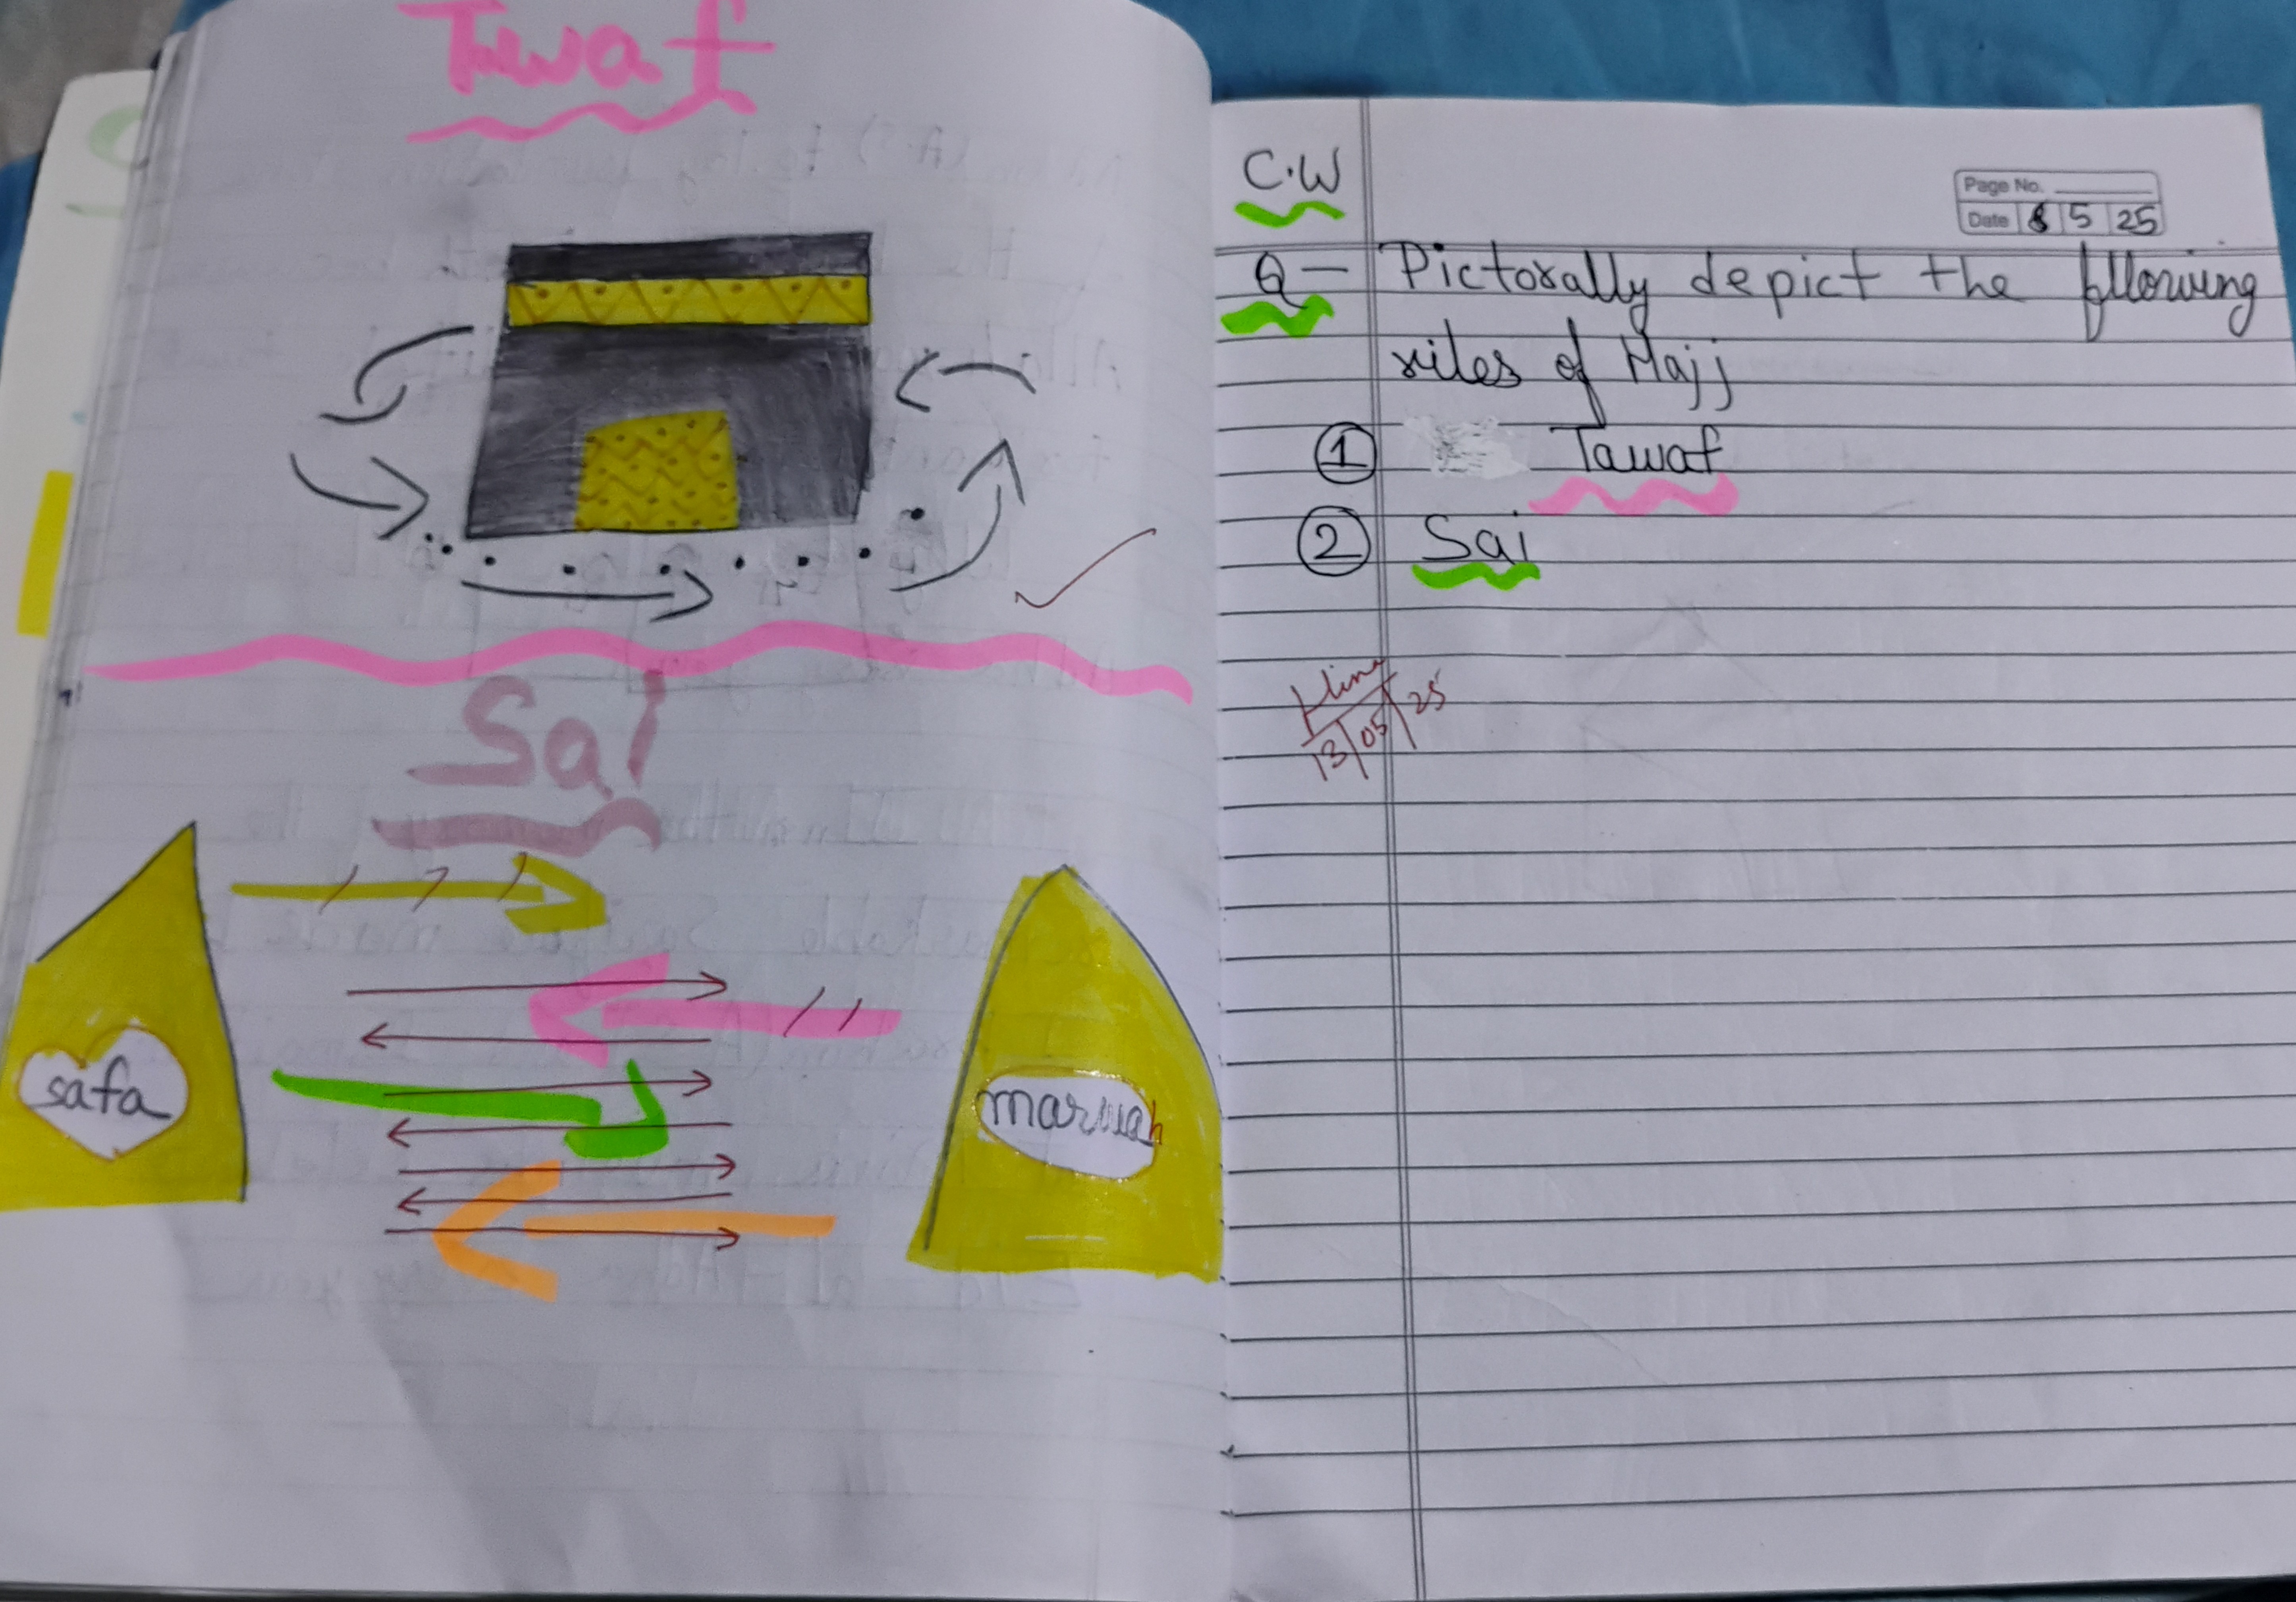 Tawaf
Sai
safa
marwah
C.W
Page No.
Date 8 5 25
Q- Pictorally depict the following
rites of Hajj
① Tawaf
② Sai
Hina
13/05/25